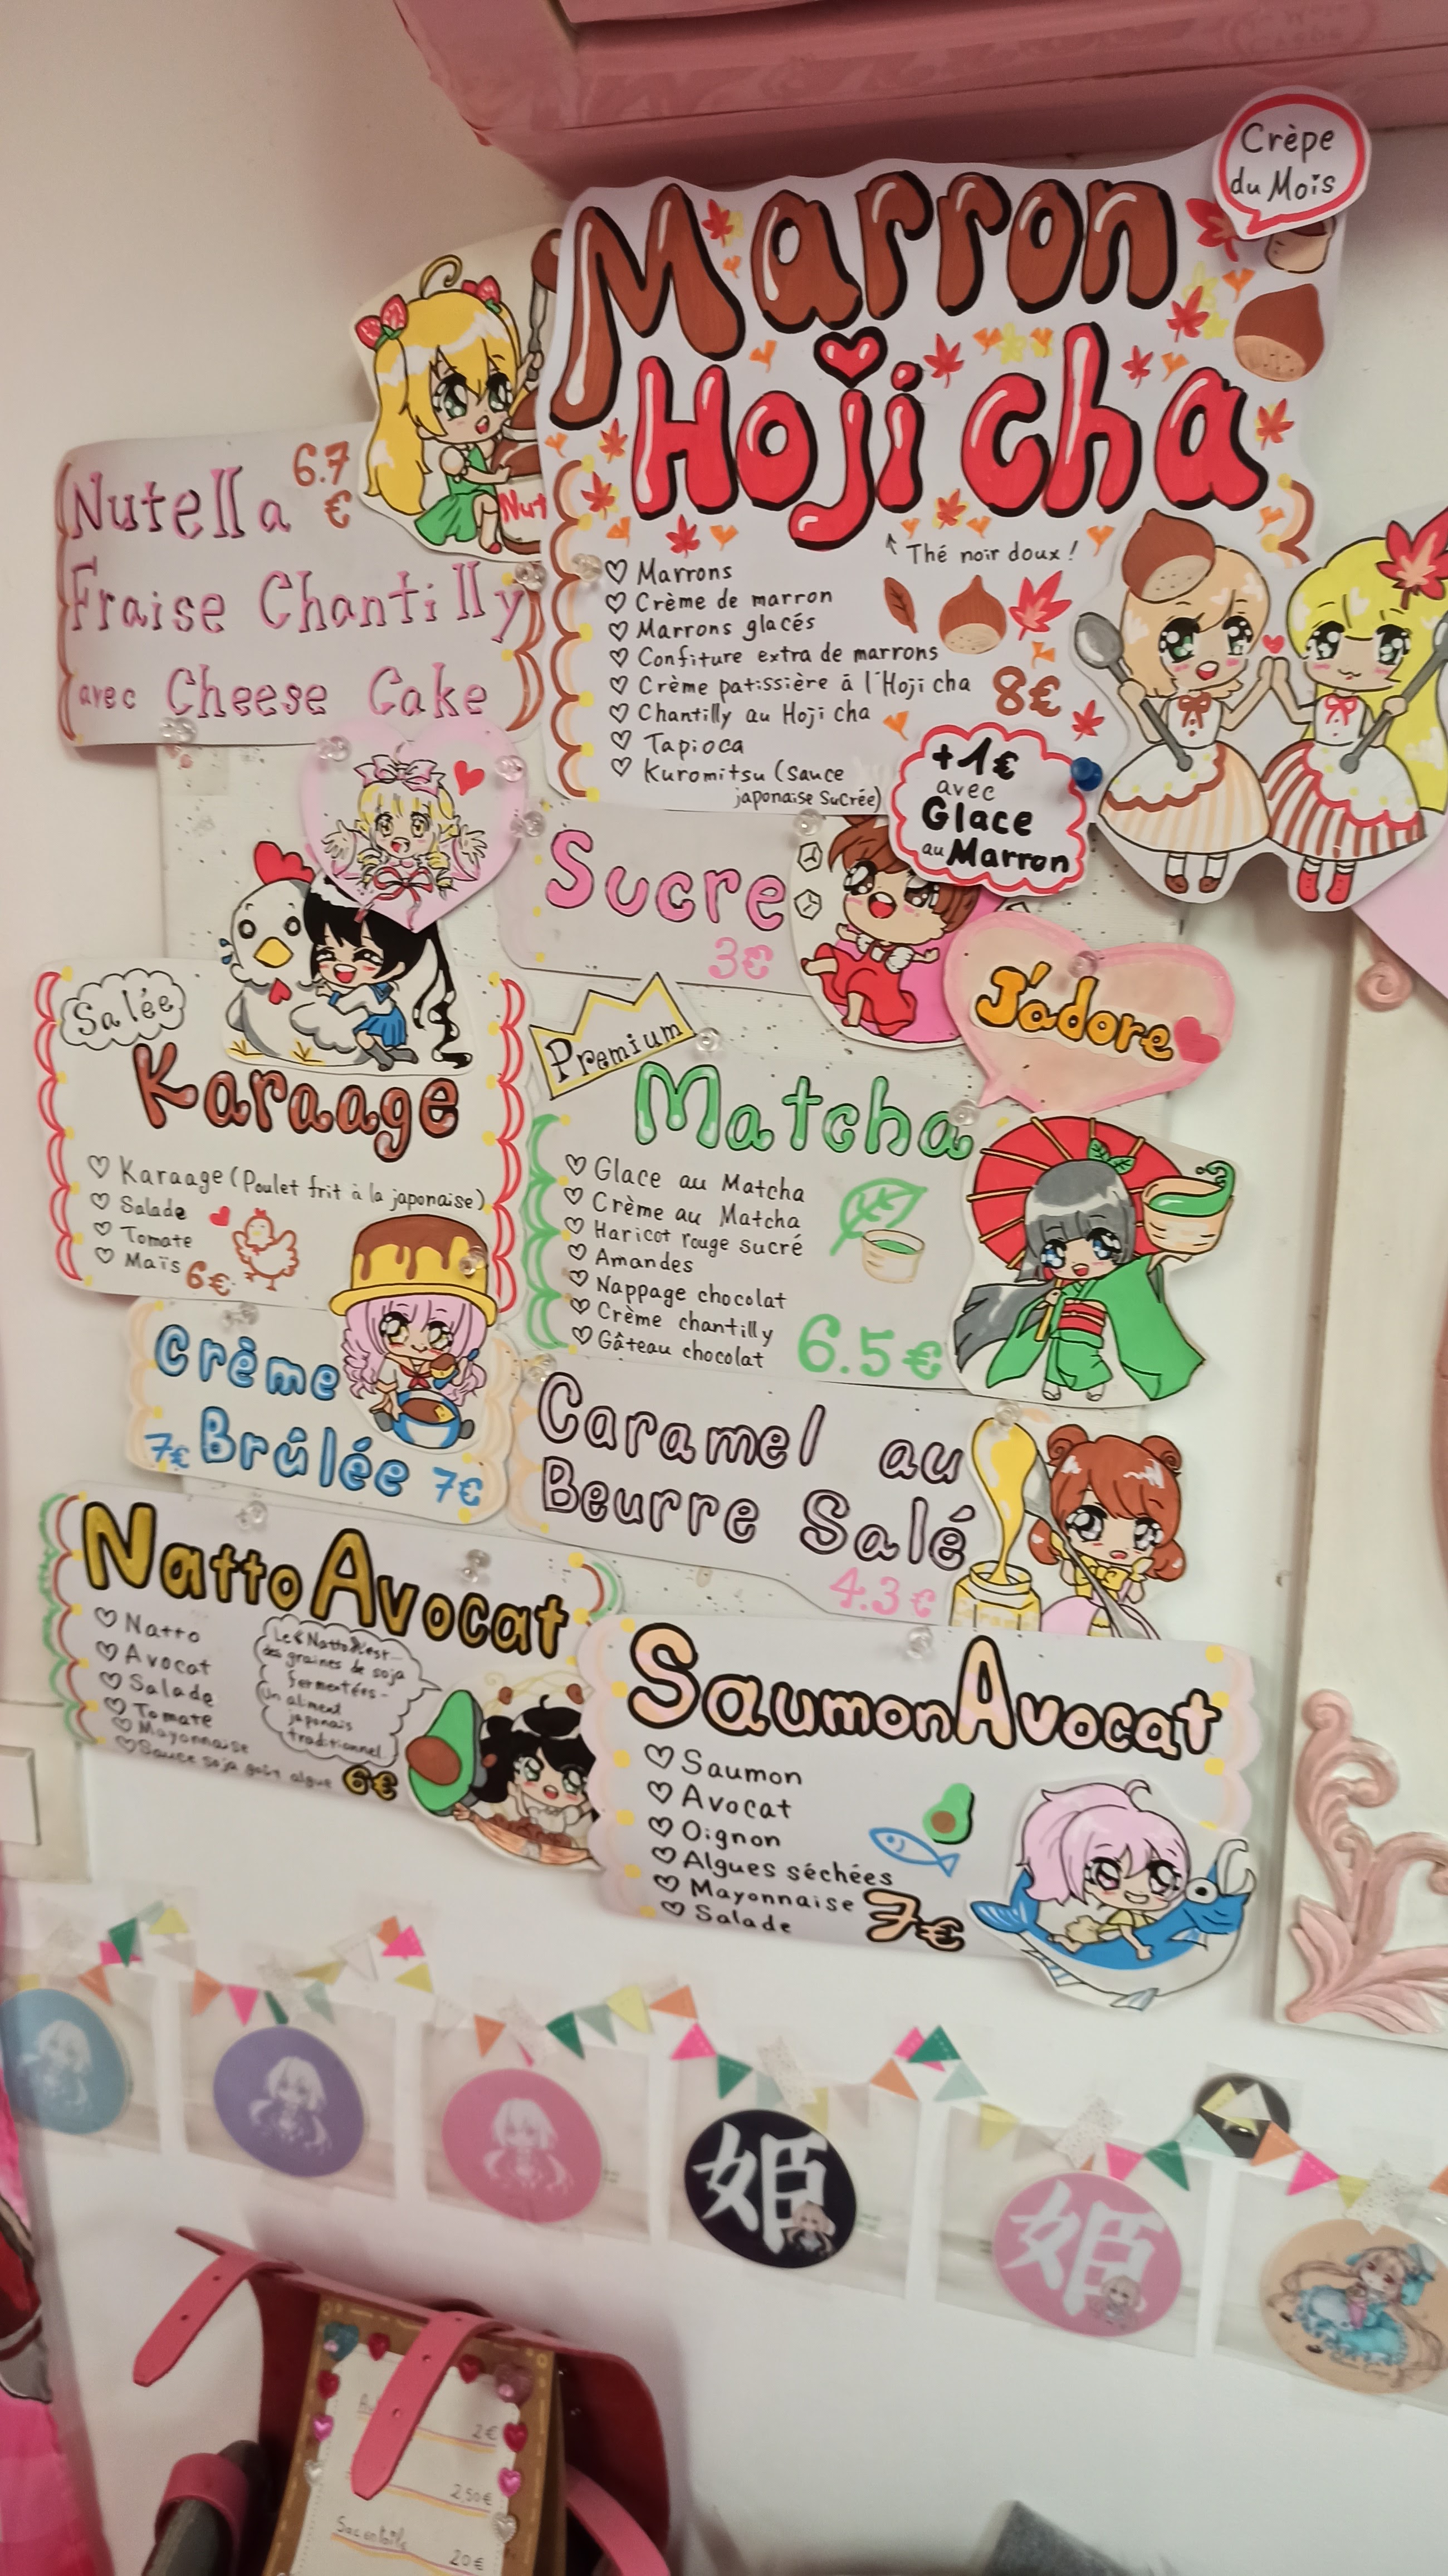 Crèpe
du Mois
Marron
Hojicha
Thé noir doux !
Marrons
Crème de marron
Marrons glacés
Confiture extra de marrons
Crème patissière à l'Hojicha
Chantilly au Hojicha
Tapioca
Kuromitsu (Sauce
japonaise Sucrée)
8€
+1€
avec
Glace
au Marron
Nutella
6.7
€
Fraise Chantilly
avec Cheese Cake
Nut
Sucre
3€
J'adore
Salée
Karaage
Karaage (Poulet frit à la japonaise)
Salade
Tomate
Maïs
6€
Premium
Matcha
Glace au Matcha
Crème au Matcha
Haricot rouge sucré
Amandes
Nappage chocolat
Crème chantilly
Gâteau chocolat
6.5€
Crème
7€ Brûlée 7€
Caramel au
Beurre Salé
4.3€
Natto Avocat
Natto
Avocat
Salade
Tomate
Mayonnaise
Sauce soja goût algue
6€
Le «Natto» est
des graines de soja
fermentées-
Un aliment
japonais
traditionnel
Saumon Avocat
Saumon
Avocat
Oignon
Algues séchées
Mayonnaise
Salade
7€
姫
姫
2€
2,50€
20€